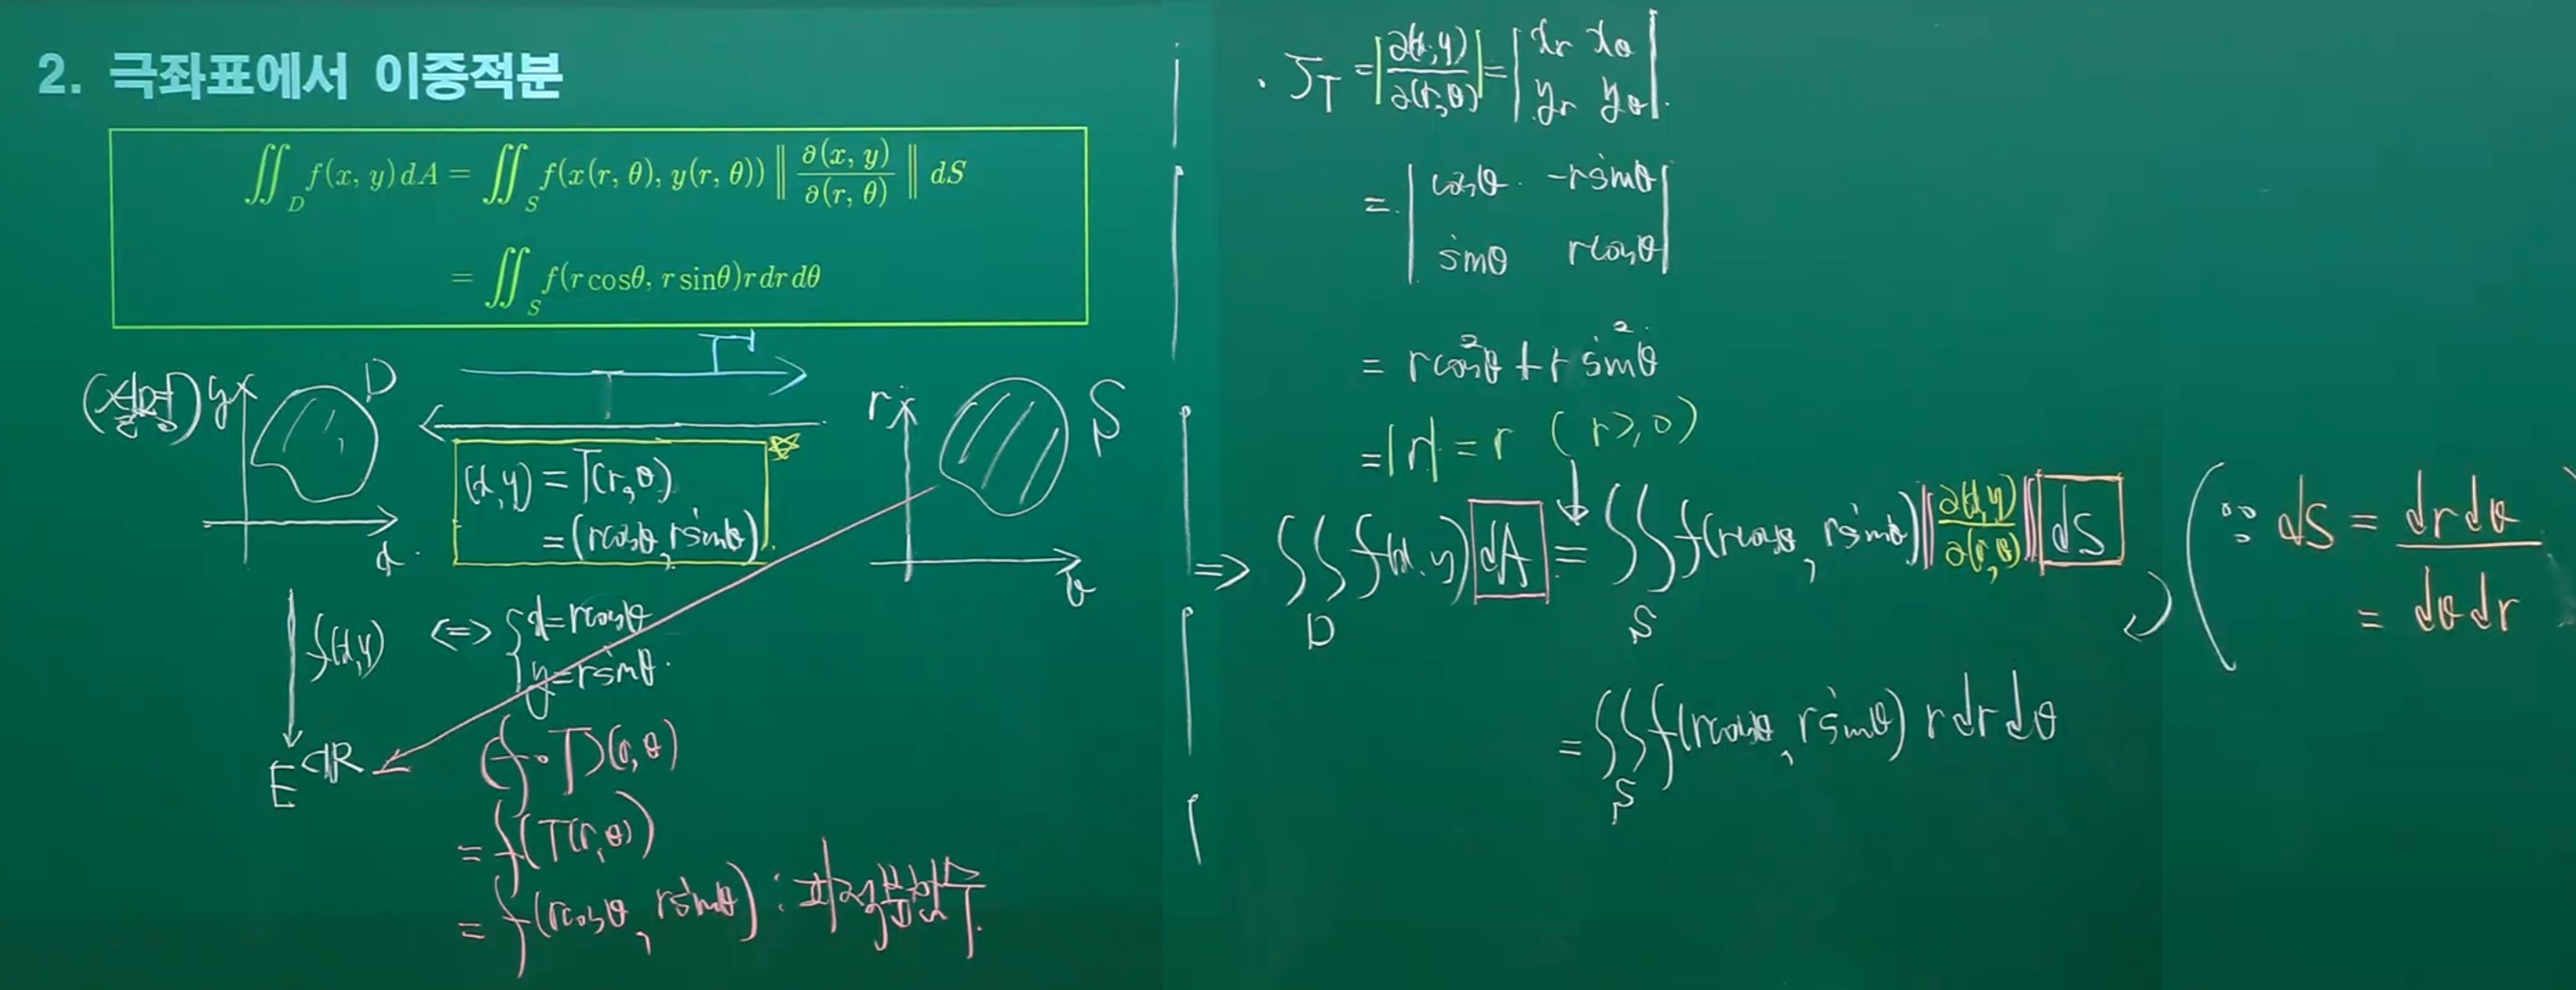 2. 극좌표에서 이중적분
∬_D f(x, y) dA = ∬_S f(x(r, θ), y(r, θ)) ‖ ∂(x, y) / ∂(r, θ) ‖ dS
= ∬_S f(r cosθ, r sinθ) r dr dθ
y D
T⁻¹
T
r S
(x,y) = T(r,θ)
= (rcosθ, rsinθ)
x
θ
f(x,y) ⇔ { x=rcosθ
y=rsinθ.
E ⊂ℝ
(f∘T)(r,θ)
= f(T(r,θ))
= f(rcosθ, rsinθ) : 피적분함수.
· J_T = |∂(x,y)/∂(r,θ)| = | x_r x_θ
y_r y_θ |.
= | cosθ -rsinθ
sinθ rcosθ |
= rcos²θ + rsin²θ
= |r| = r (r≥0)
⇒ ∬_D f(x,y) dA = ∬_S f(rcosθ, rsinθ) ‖∂(x,y)/∂(r,θ)‖ dS
(∵ dS = drdθ
= dθdr
= ∬_S f(rcosθ, rsinθ) r dr dθ